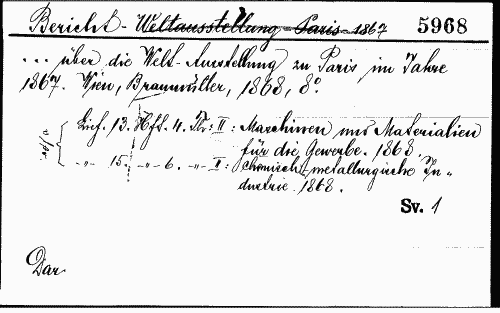 Bericht - Weltausstellung - Paris - 1867 5968
... über die Welt-Ausstellung zu Paris im Jahre
1867. Wien, Braumüller, 1868, 8°.
Lief. 13. Hft. 4. II: Maschinen und Materialien
für die Gewerbe. 1868.
-"- 15. -"- 6. -"- II: Chemisch-metallurgische In-
dustrie. 1868.
Sv. 1
Dar